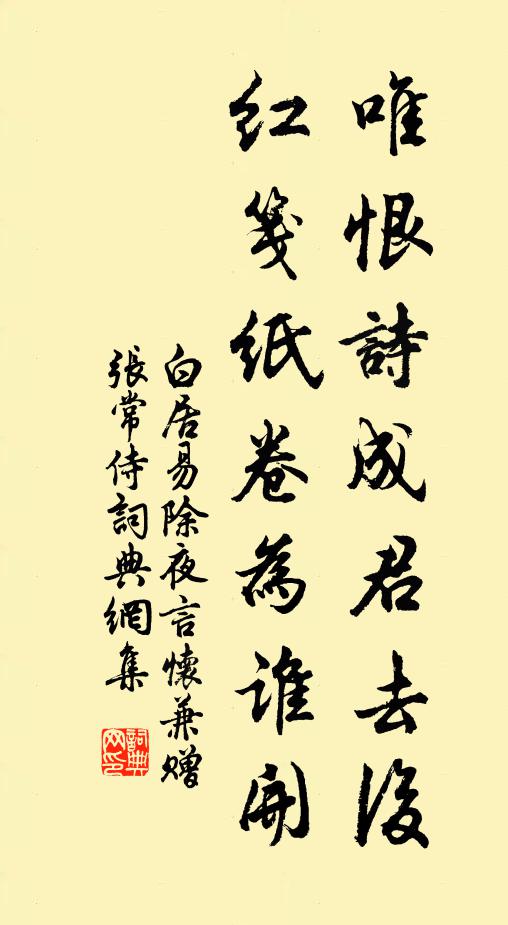 唯恨詩成君去後
紅箋紙卷為誰開
白居易除夜言懷兼贈
張常侍詞典網集
詞典網印